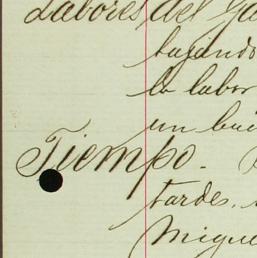 Labores del
bajando
la labor
un
Tiempo.
tardes.
Migue